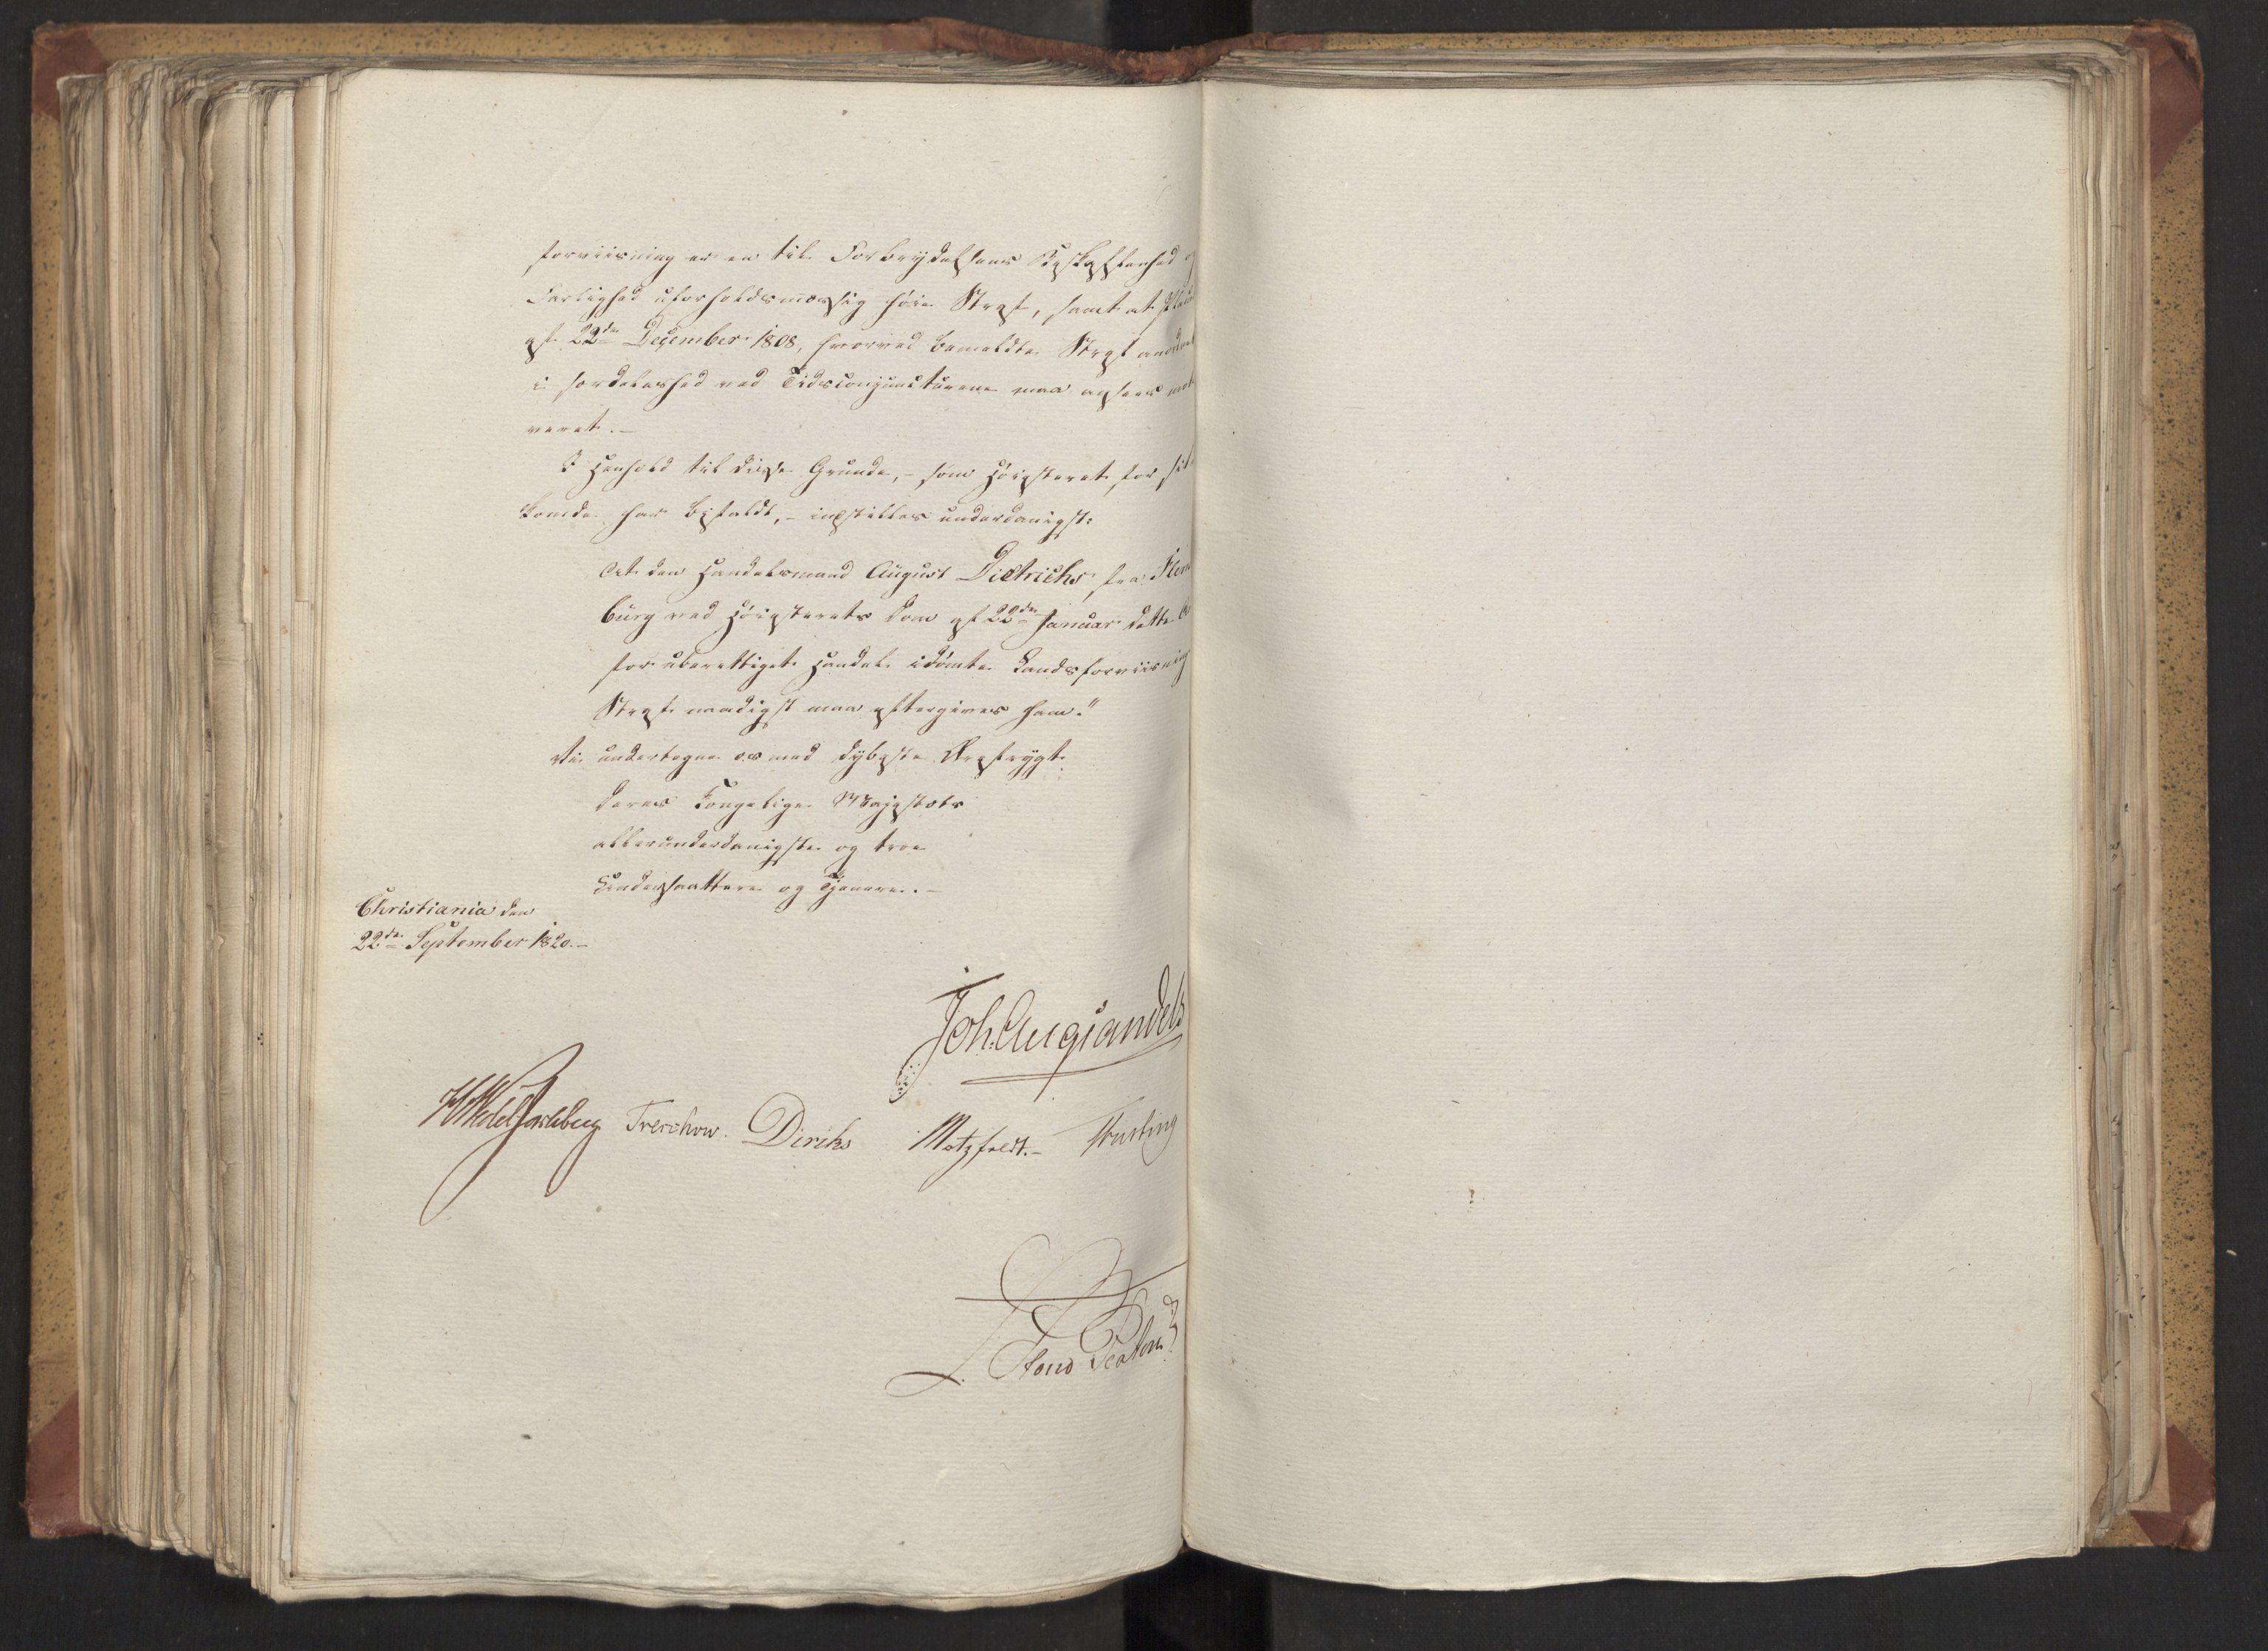 forviisning er en til Forbrydelsens Beskaffenhed
Farlighed uforholdsmæssig høi Straf, samt at
af 22de December 1808, hvorved bemeldte Straf
i særdeleshed ved Tidsconjuncturerne maa ansees
veret.-
I Henhold til disse Grunde, - som Høiesteret for sit
komde har bifaldt, - indstilles underdanigst:
At den Handelsmand August Dietrichs fra
burg ved Høiesterets Dom af 22de Januar dette
for uberettiget Handel idømte Landsforviisnings
Straf naadigst maa eftergives ham."
Vi undertegne os med dybeste Ærefrygt
Deres Kongelige Majestæts
allerunderdanigste og troe
Undersaattere og Tjenere.-
Christiania den
22de September 1820.-
Joh. Aug. Sandels
HWedelJarlsberg Treschow. Diriks Motzfeldt.-